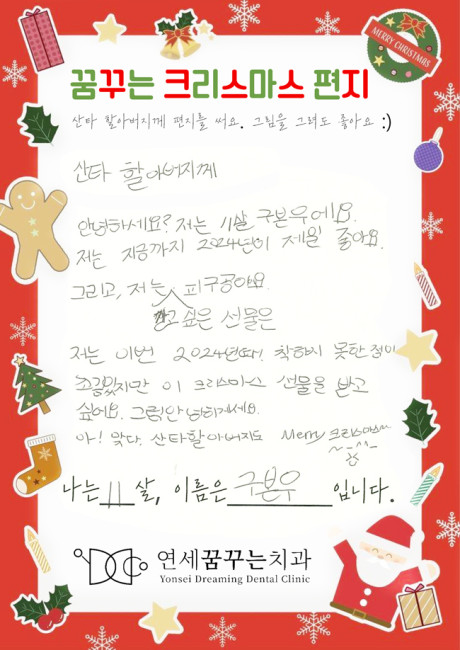 MERRY CHRISTMAS
꿈꾸는 크리스마스 편지
산타 할아버지께 편지를 써요. 그림을 그려도 좋아요 :)
산타 할아버지께
안녕하세요? 저는 11살 구본우에요.
저는 지금까지 2024년이 제일 좋아요.
그리고, 저는 피구공이에요.
받고 싶은 선물은
저는 이번 2024년때 착하지 못한 점이
조금있지만 이 크리스마스 선물을 받고
싶어요. 그럼안녕히계세요.
아! 맞다. 산타할아버지도 Merry 크리스마스~
나는 11 살, 이름은 구본우 입니다.
연세꿈꾸는치과
Yonsei Dreaming Dental Clinic